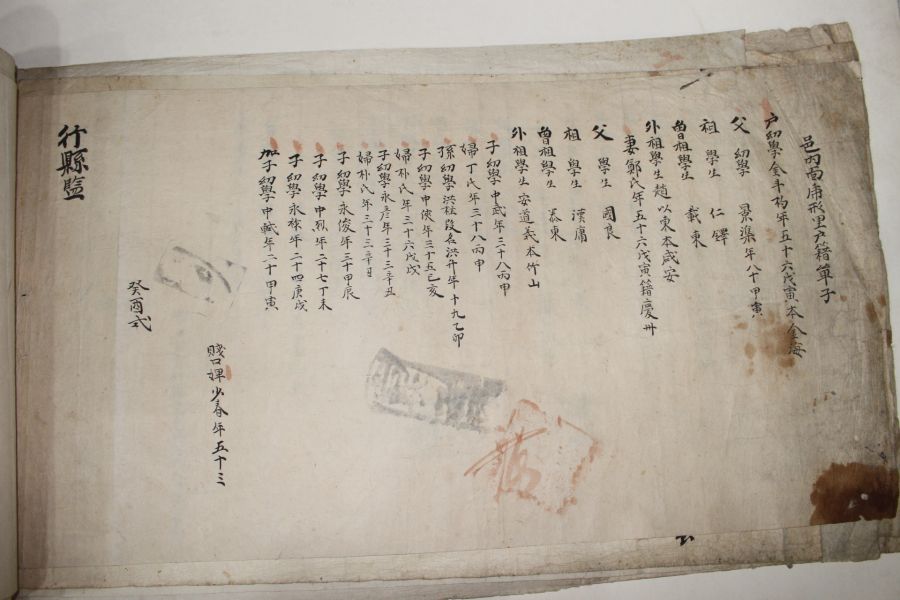 邑內面席形里戶籍單子
戶幼學金 年五十六戊寅本金海
父 幼學 景 年八十甲寅
祖 學生 仁鐸
曾祖學生 載東
外祖學生趙以東本咸安
妻鄭氏年五十六戊寅籍慶州
父 學生 國良
祖 學生 漢庸
曾祖學生 東
外祖學生安道義本竹山
子幼學中武年三十八丙申
婦丁氏年三十八丙申
孫幼學洪 改名洪升年十九乙卯
子幼學中 年三十五己亥
婦朴氏年三十六戊戌
子幼學永彦年三十三辛丑
婦朴氏年三十三辛丑
子幼學永俊年三十甲辰
子幼學中 年二十七丁未
子幼學永 年二十四庚戌
加子幼學中 年二十甲寅
賤口婢少春年五十三
癸酉式
行縣監